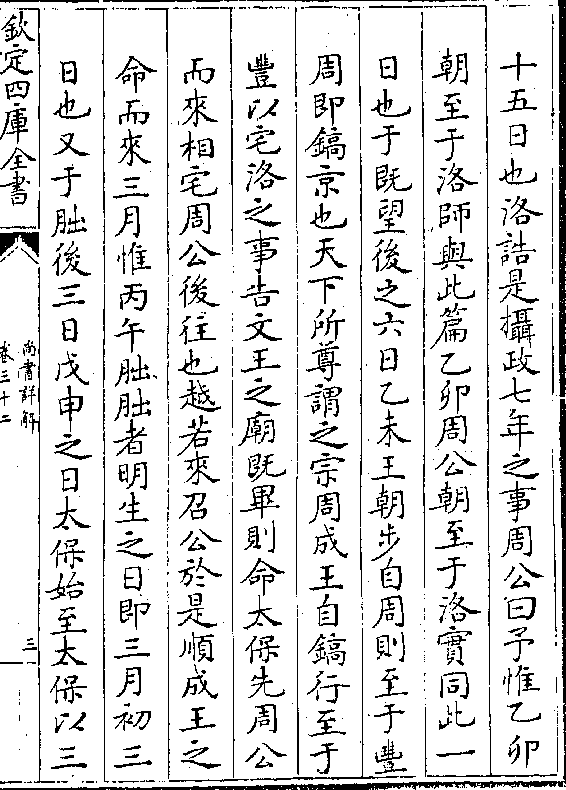 十五日也洛誥是攝政七年之事周公曰予惟乙卯
朝至于洛師與此篇乙卯周公朝至于洛實同此一
日也于既望後之六日乙未王朝步自周則至于豐
周即鎬京也天下所尊謂之宗周成王自鎬行至于
豐以宅洛之事告文王之廟既畢則命太保先周公
而來相宅周公後往也越若來召公於是順成王之
命而來三月惟丙午朏朏者明生之日即三月初三
日也又于朏後三日戊申之日太保始至太保以三
欽定四庫全書
尚書詳解
卷三十二
三